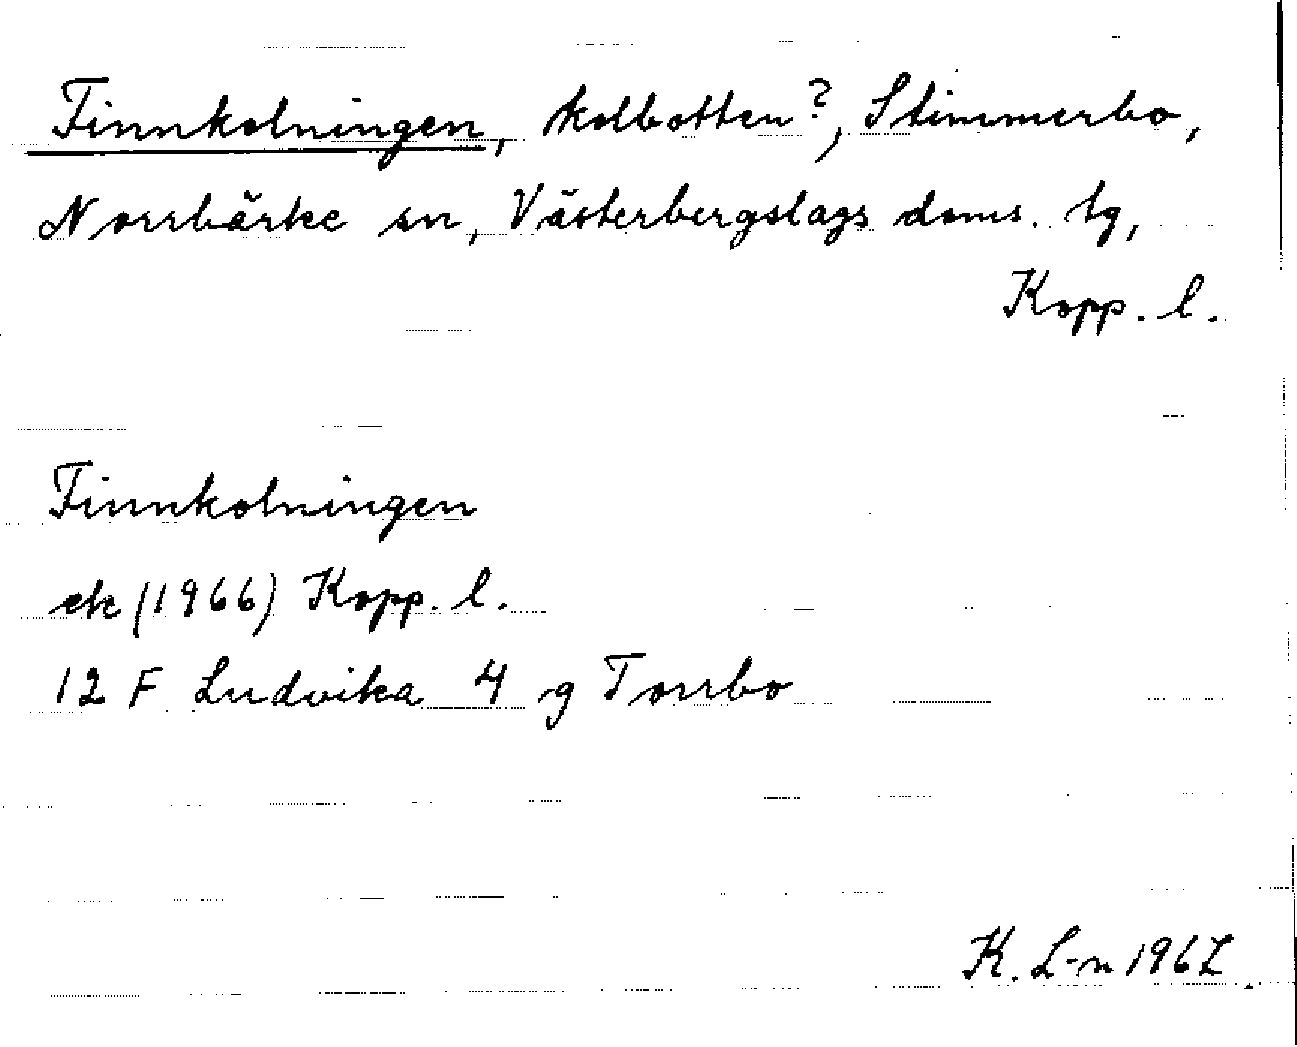 Finnkolningen, kolbotten?, Stimmerbo,
Norrbärke sn, Västerbergslags doms. tg,
Kopp. l.
Finnkolningen
ek (1966) Kopp. l.
12 F Ludvika 4 g Torrbo
K. L-n 1967.